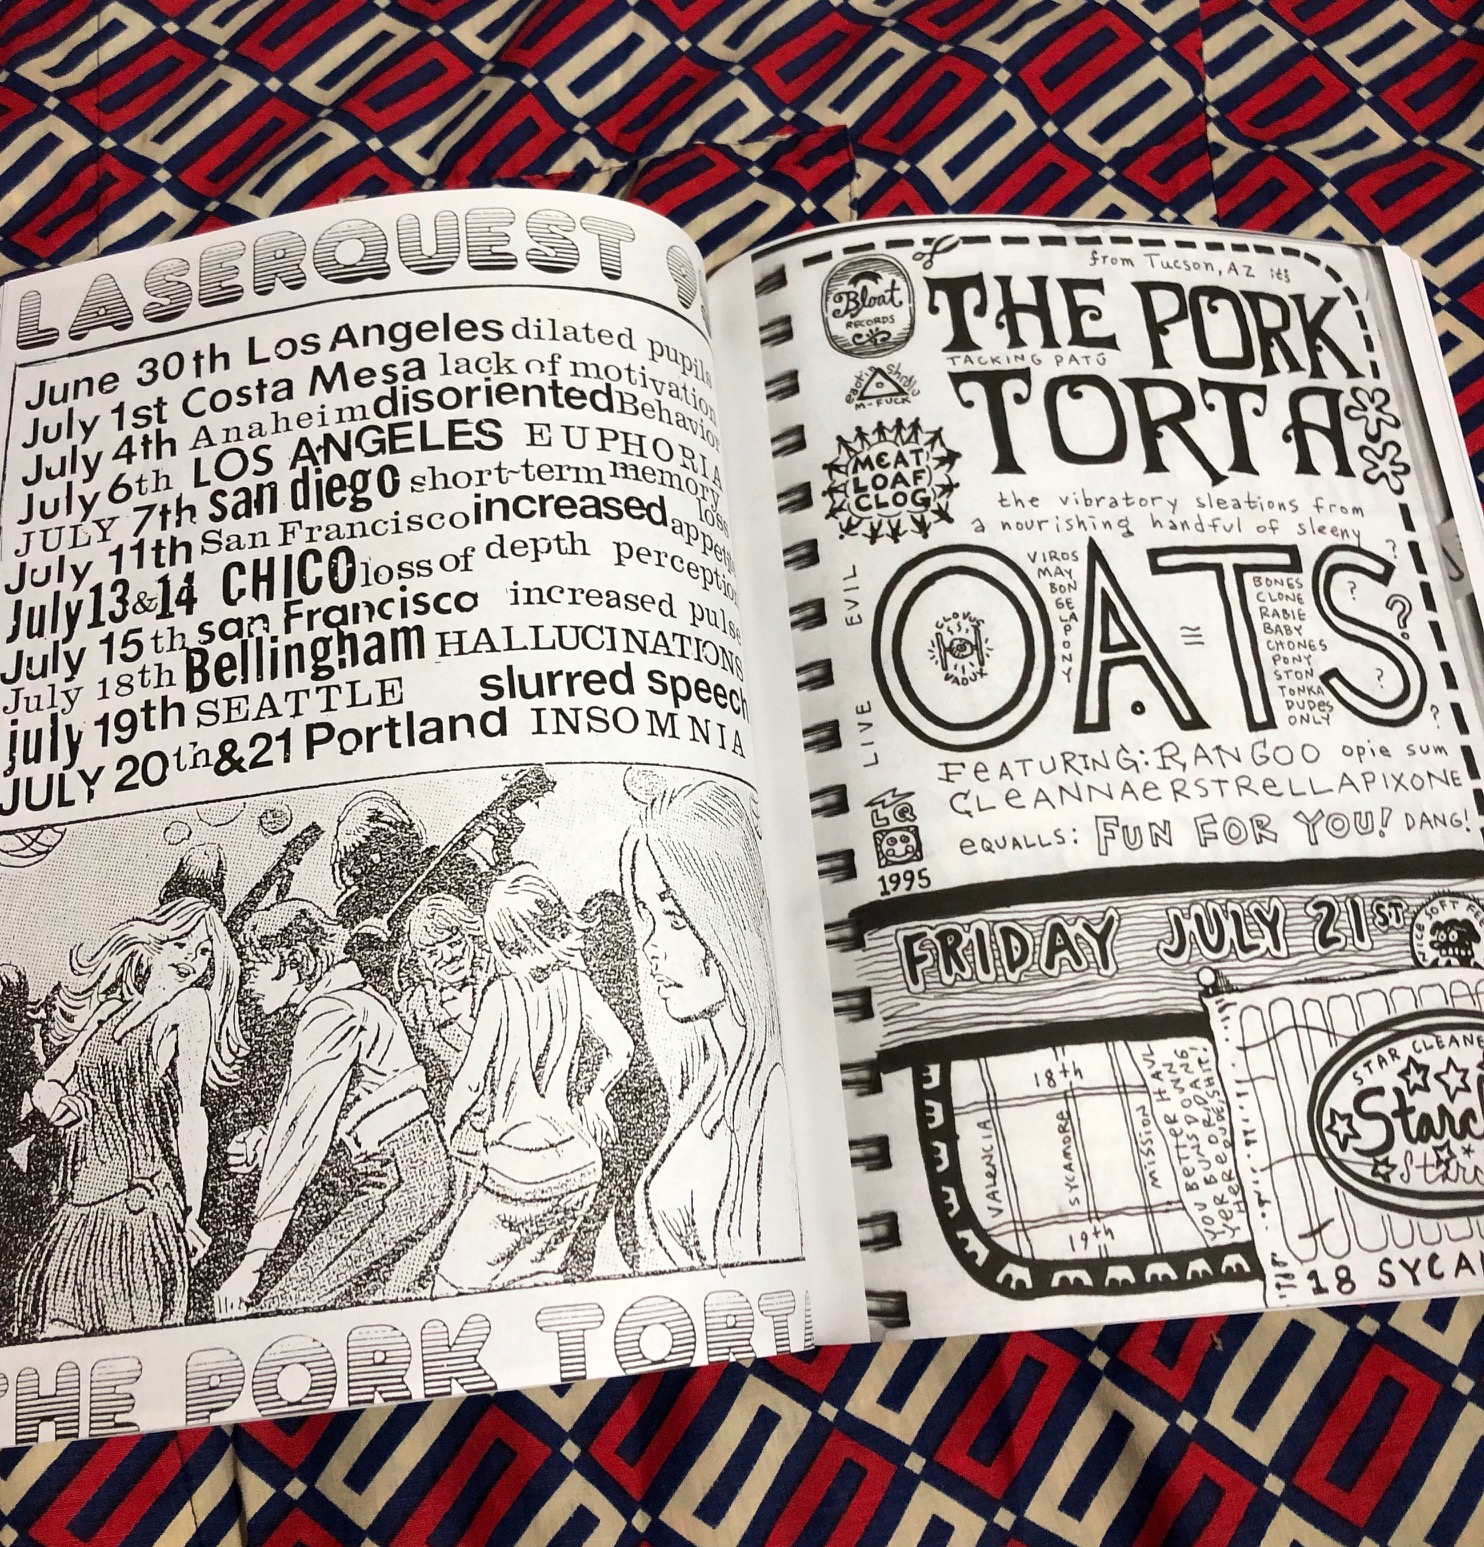 LASERQUEST
June 30th Los Angeles dilated pupils
July 1st Costa Mesa lack of motivation
July 4th Anaheim disoriented Behavior
July 6th LOS ANGELES EUPHORIA
JULY 7th san diego short-term memory loss
July 11th San Francisco increased appetite
July 13&14 CHICO loss of depth perception
July 15th san Francisco increased pulse
July 18th Bellingham HALLUCINATIONS
july 19th SEATTLE slurred speech
JULY 20th&21 Portland INSOMNIA
THE PORK TORTA
from Tucson, AZ its
Bloat
RECORDS
THE PORK
TACKING PATO
TORTA
M-FUCK
MEAT
LOAF
CLOG
the vibratory sleations from
a nourishing handful of sleeny
OATS
CLOVUS
VADUX
VIRDS
MAY
BON
GE
LA
P
O
N
Y
=
BONES
CLONE
RABIE
BABY
CHONES
PONY
STON
TONKA
DUDES
ONLY
? ? ? ? ?
LIVE EVIL
FEATURING: RANGOO opie sum
CLEANNAERSTRELLAPIXONE
EQUALLS: FUN FOR YOU! DANG!
LQ
1995
FRIDAY JULY 21ST
18th
VALENCIA
SYCAMORE
MISSION
19th
YOU BETTER HAVL
YER BUNS DOWN
HERE OR DANG
YER RUDE SHIT!
STAR CLEANE
Starc
18 SYCA